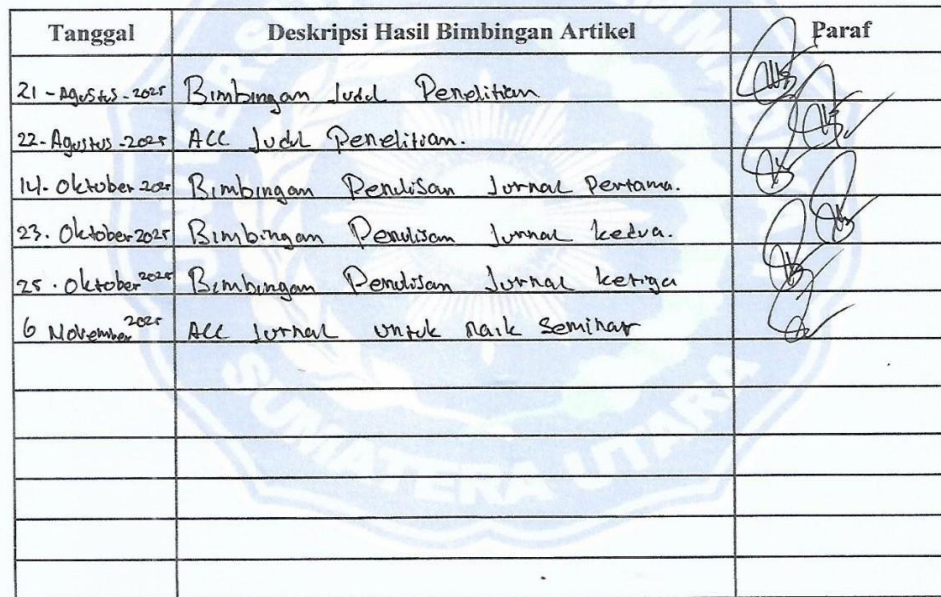 Tanggal Deskripsi Hasil Bimbingan Artikel Paraf
21 - Agustus - 2025 Bimbingan Judul Penelitian
22 - Agustus - 2025 ACC Judul Penelitian.
14. Oktober 2025 Bimbingan Penulisan Jurnal Pertama.
23. Oktober 2025 Bimbingan Penulisan Jurnal kedua.
25. Oktober 2025 Bimbingan Penulisan Jurnal ketiga
6 November 2025 ACC Jurnal untuk naik Seminar
SUMATERA UTARA